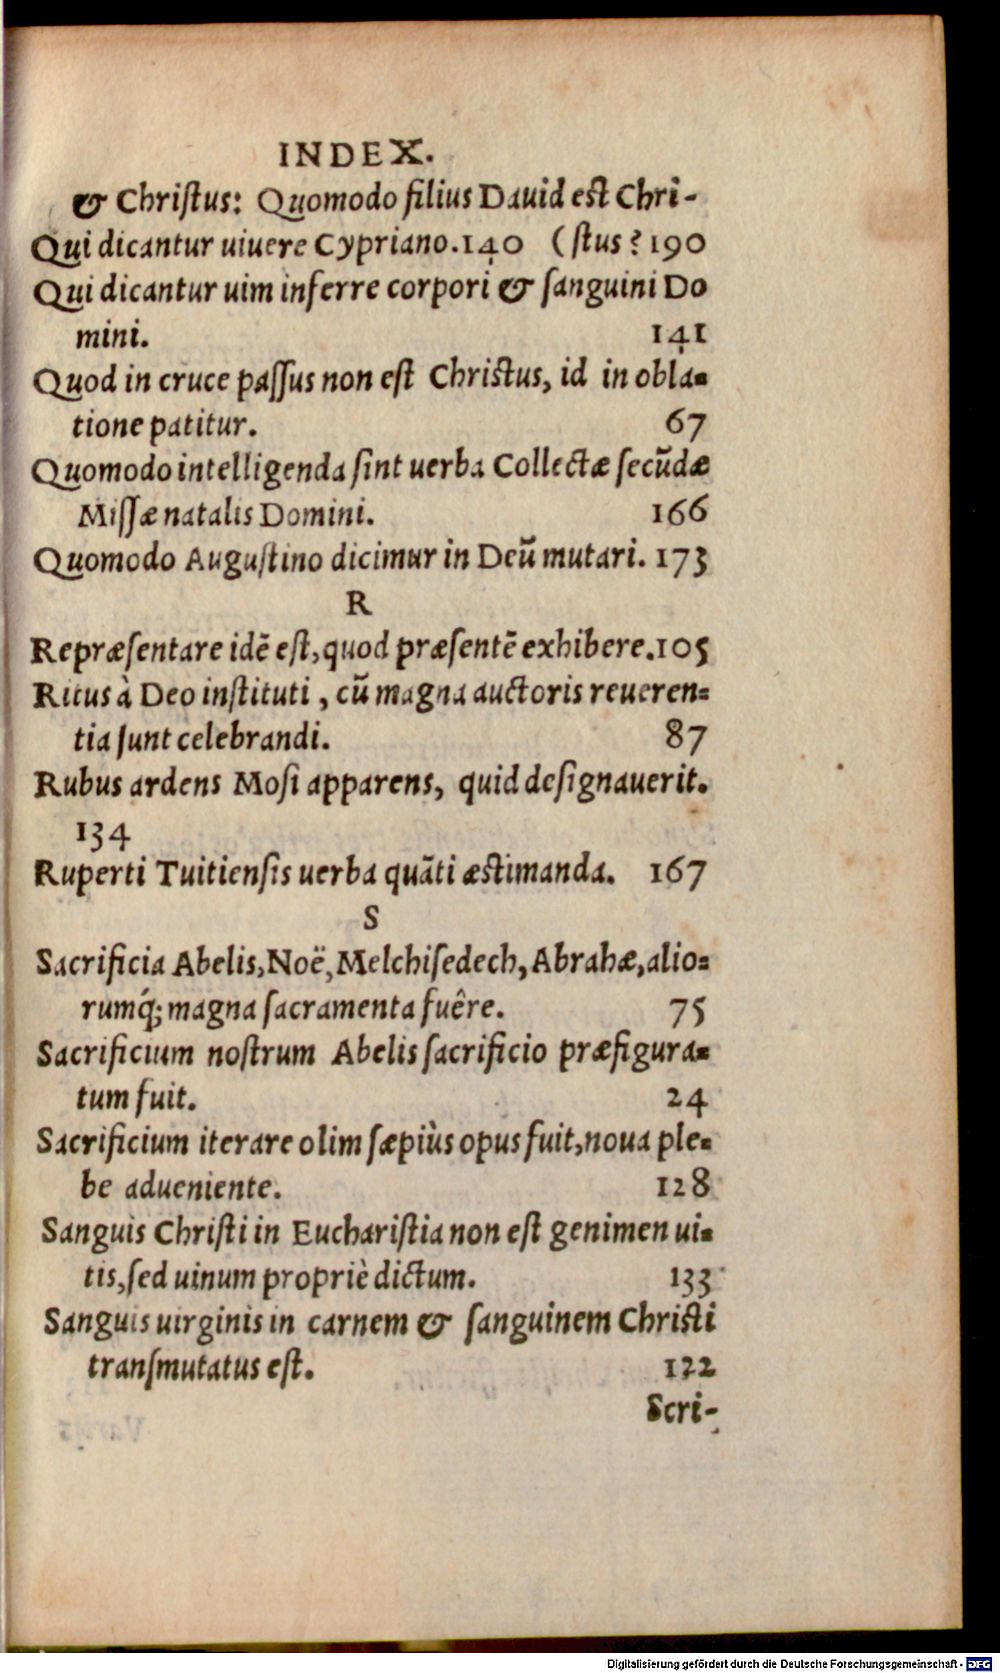 INDEX.
& Chriſtus: Quomodo filius Dauid eſt Chri-
Qui dicantur uiuere Cypriano. 140 (ſtus? 190
Qui dicantur uim inferre corpori & ſanguini Do
mini. 141
Quod in cruce paſſus non eſt Chriſtus, id in obla-
tione patitur. 67
Quomodo intelligenda ſint uerba Collectæ ſecũdæ
Miſſæ natalis Domini. 166
Quomodo Auguſtino dicimur in Deũ mutari. 173
R
Repræſentare idẽ eſt, quod præſentẽ exhibere. 105
Ritus à Deo inſtituti, cũ magna auctoris reueren-
tia ſunt celebrandi. 87
Rubus ardens Moſi apparens, quid deſignauerit.
134
Ruperti Tuitienſis uerba quãti æſtimanda. 167
S
Sacrificia Abelis, Noë, Melchiſedech, Abrahæ, alio-
rumq́; magna ſacramenta fuêre. 75
Sacrificium noſtrum Abelis ſacrificio præfigura-
tum fuit. 24
Sacrificium iterare olim ſæpiùs opus fuit, noua ple-
be adueniente. 128
Sanguis Chriſti in Euchariſtia non eſt genimen ui-
tis, ſed uinum propriè dictum. 133
Sanguis uirginis in carnem & ſanguinem Chriſti
tranſmutatus eſt. 122
Scri-
Digitalisierung gefördert durch die Deutsche Forschungsgemeinschaft - DFG